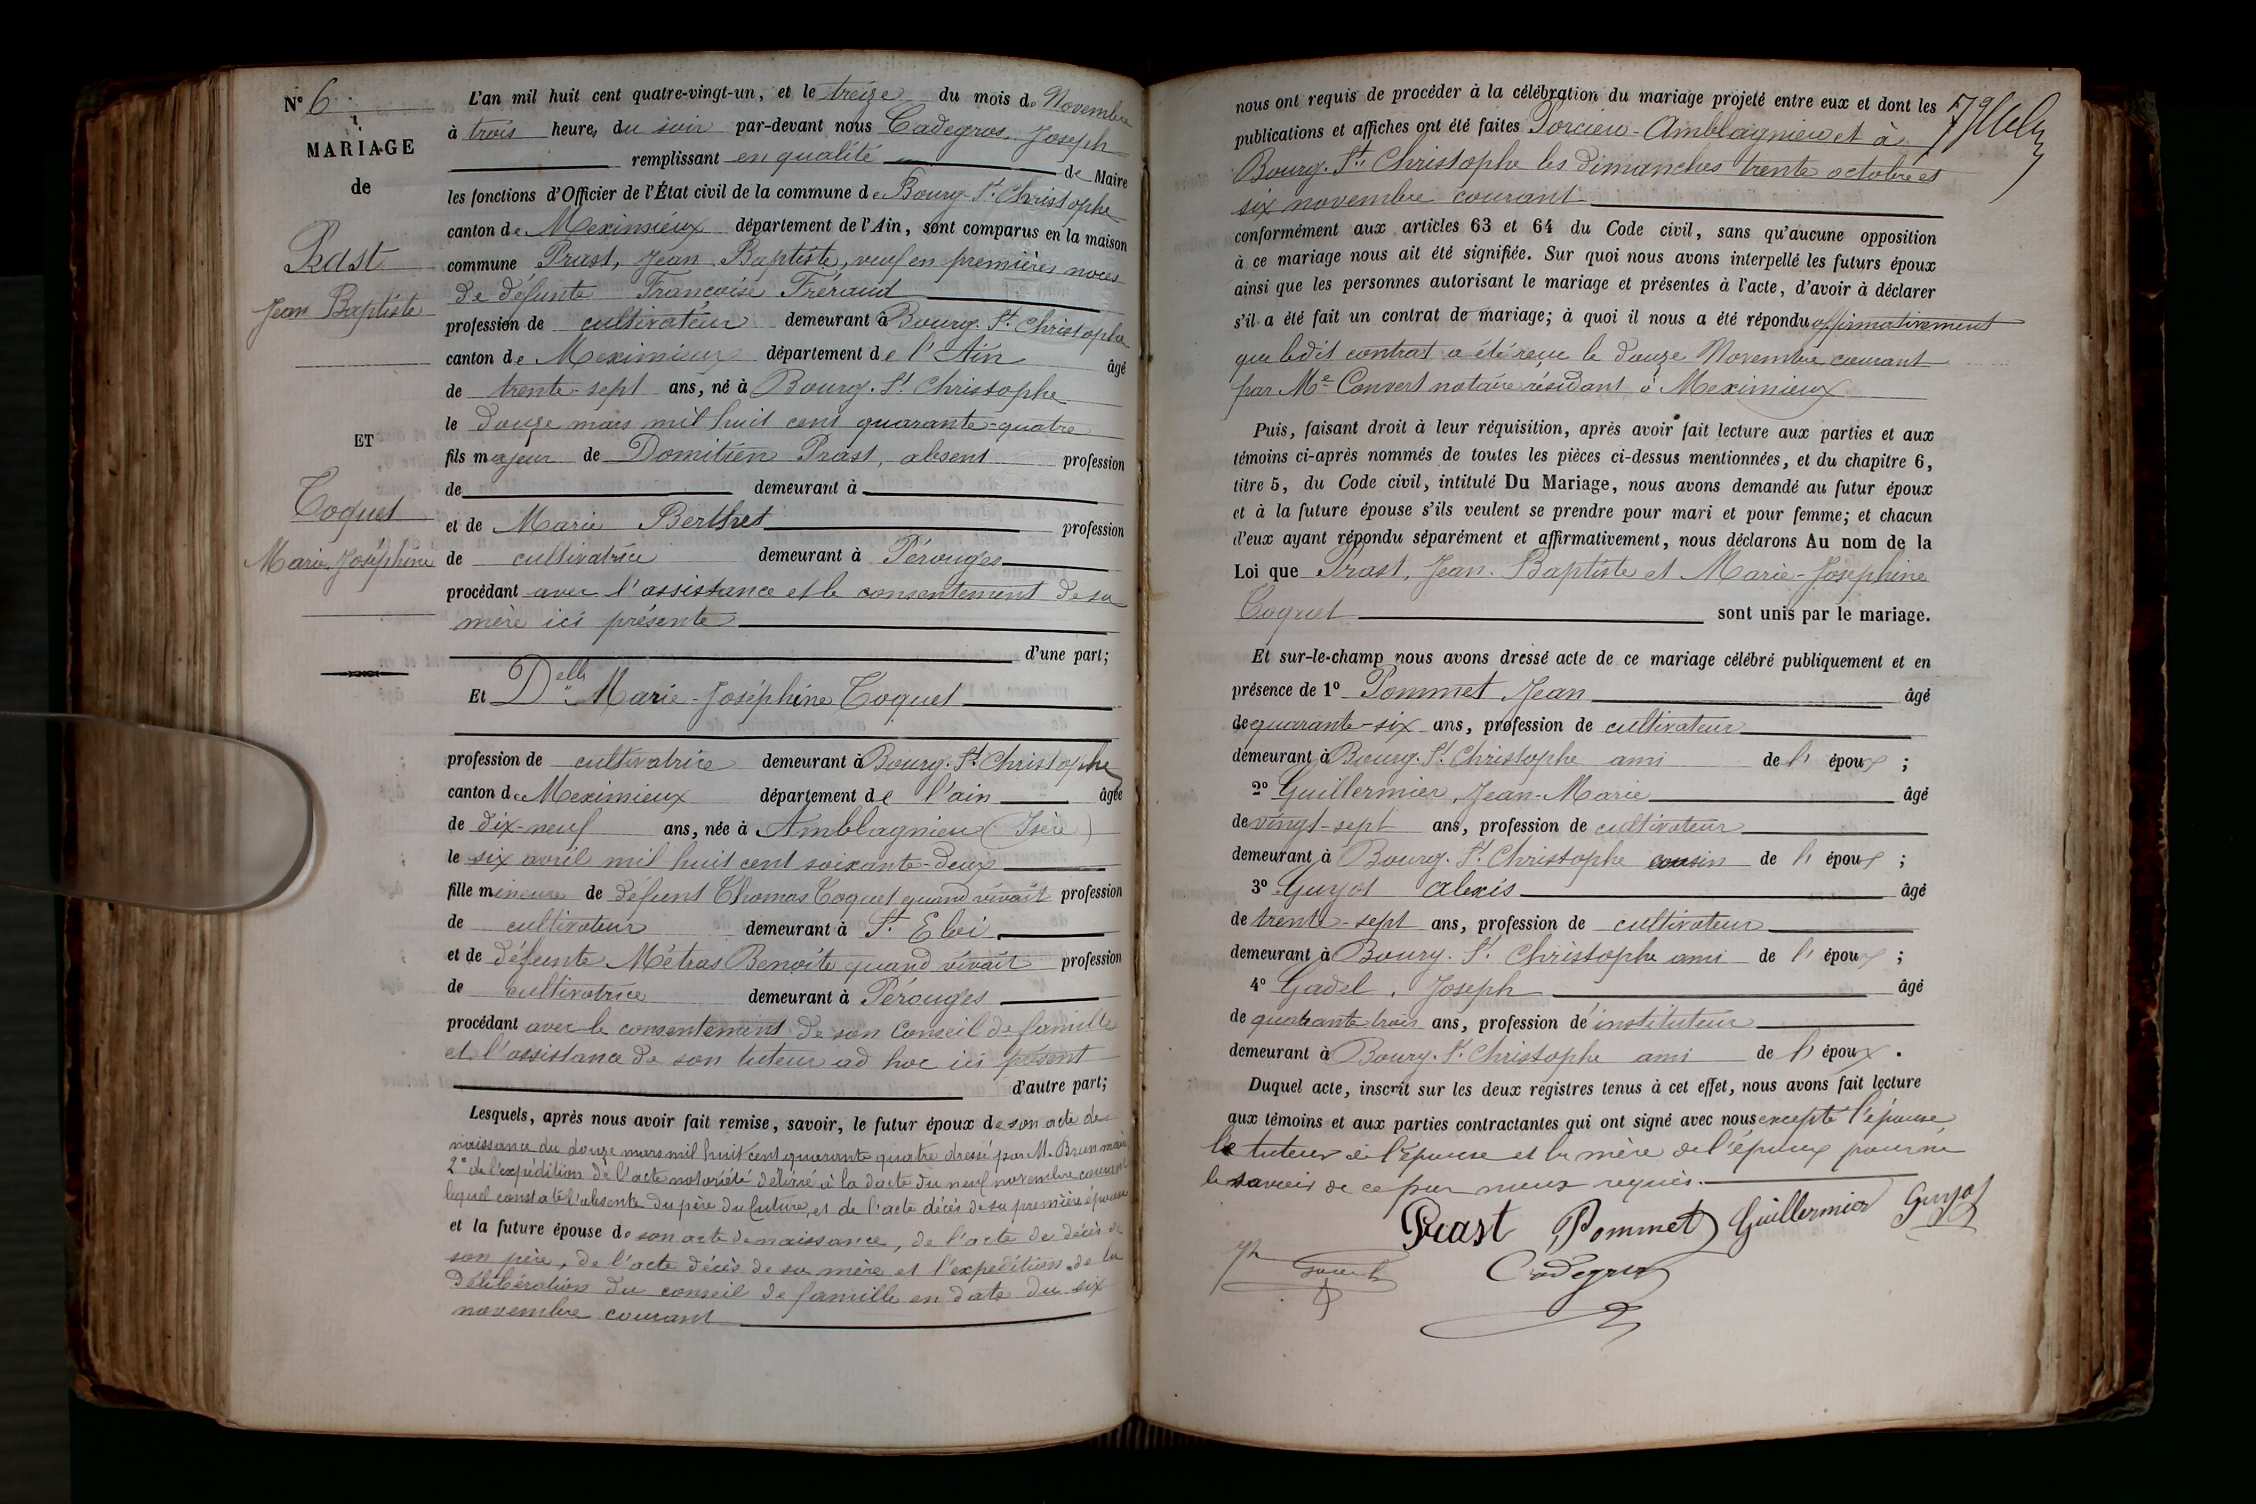 N° 6
MARIAGE
de
Prast
Jean Baptiste
ET
Coquet
Marie Joséphine
L'an mil huit cent quatre-vingt-un, et le treize du mois de Novembre
à trois heures du soir par-devant nous Cadegros Joseph
remplissant en qualité de Maire
les fonctions d'Officier de l'État civil de la commune de Bourg-St Christophe
canton de Meximieux département de l'Ain, sont comparus en la maison
commune Prast, Jean Baptiste, veuf en premières noces
de défunte Françoise Fréraud
profession de cultivateur demeurant à Bourg-St Christophe
canton de Meximieux département de l'Ain âgé
de trente-sept ans, né à Bourg-St Christophe
le douze mars mil huit cent quarante-quatre
fils majeur de Domitien Prast, absent profession
de demeurant à
et de Marie Berthet profession
de cultivatrice demeurant à Pérouges
procédant avec l'assistance et le consentement de sa
mère ici présente
d'une part;
Et Delle Marie-Joséphine Coquet
profession de cultivatrice demeurant à Bourg-St Christophe
canton de Meximieux département de l'ain âgée
de dix-neuf ans, née à Amblagnieu (Isère)
le six avril mil huit cent soixante-deux
fille mineure de défunt Thomas Coquet quand vivait profession
de cultivateur demeurant à St Eloi
et de défunte Métras Benoîte quand vivait profession
de cultivatrice demeurant à Pérouges
procédant avec le consentement de son Conseil de famille
et l'assistance de son tuteur ad hoc ici présent
d'autre part;
Lesquels, après nous avoir fait remise, savoir, le futur époux de son acte de
naissance du douze mars mil huit cent quarante quatre dressé par M. Brun maire
2° de l'expédition de l'acte notoriété délivré à la date du neuf novembre courant
lequel constate l'absente du père du futur, et de l'acte décès de sa première épouse
et la future épouse de son acte de naissance, de l'acte de décès de
son père, de l'acte décès de sa mère et l'expédition de la
délibération du conseil de famille en date du six
novembre courant
nous ont requis de procéder à la célébration du mariage projeté entre eux et dont les
publications et affiches ont été faites Porcieu-Amblagnieu et à
Bourg-St Christophe les dimanches trente octobre et
six novembre courant
conformément aux articles 63 et 64 du Code civil, sans qu'aucune opposition
à ce mariage nous ait été signifiée. Sur quoi nous avons interpellé les futurs époux
ainsi que les personnes autorisant le mariage et présentes à l'acte, d'avoir à déclarer
s'il a été fait un contrat de mariage; à quoi il nous a été répondu affirmativement
que ledit contrat a été reçu le douze Novembre courant
par Me Convert notaire résidant à Meximieux
Puis, faisant droit à leur réquisition, après avoir fait lecture aux parties et aux
témoins ci-après nommés de toutes les pièces ci-dessus mentionnées, et du chapitre 6,
titre 5, du Code civil, intitulé Du Mariage, nous avons demandé au futur époux
et à la future épouse s'ils veulent se prendre pour mari et pour femme; et chacun
d'eux ayant répondu séparément et affirmativement, nous déclarons Au nom de la
Loi que Prast, Jean-Baptiste et Marie-Joséphine
Coquet sont unis par le mariage.
Et sur-le-champ nous avons dressé acte de ce mariage célébré publiquement et en
présence de 1° Pommet Jean âgé
de quarante-six ans, profession de cultivateur
demeurant à Bourg-St Christophe ami de l'époux ;
2° Guillermier, Jean-Marie âgé
de vingt-sept ans, profession de cultivateur
demeurant à Bourg-St Christophe cousin de l'époux ;
3° Guyot alexis âgé
de trente-sept ans, profession de cultivateur
demeurant à Bourg-St Christophe ami de l'époux ;
4° Gadel, Joseph âgé
de quarante trois ans, profession d'instituteur
demeurant à Bourg-St Christophe ami de l'époux.
Duquel acte, inscrit sur les deux registres tenus à cet effet, nous avons fait lecture
aux témoins et aux parties contractantes qui ont signé avec nous excepté l'épouse
le tuteur de l'épouse et la mère de l'époux pour ne
le savoir de ce par nous requis.
Prast Pommet Guillermier Guyot
Cadegros